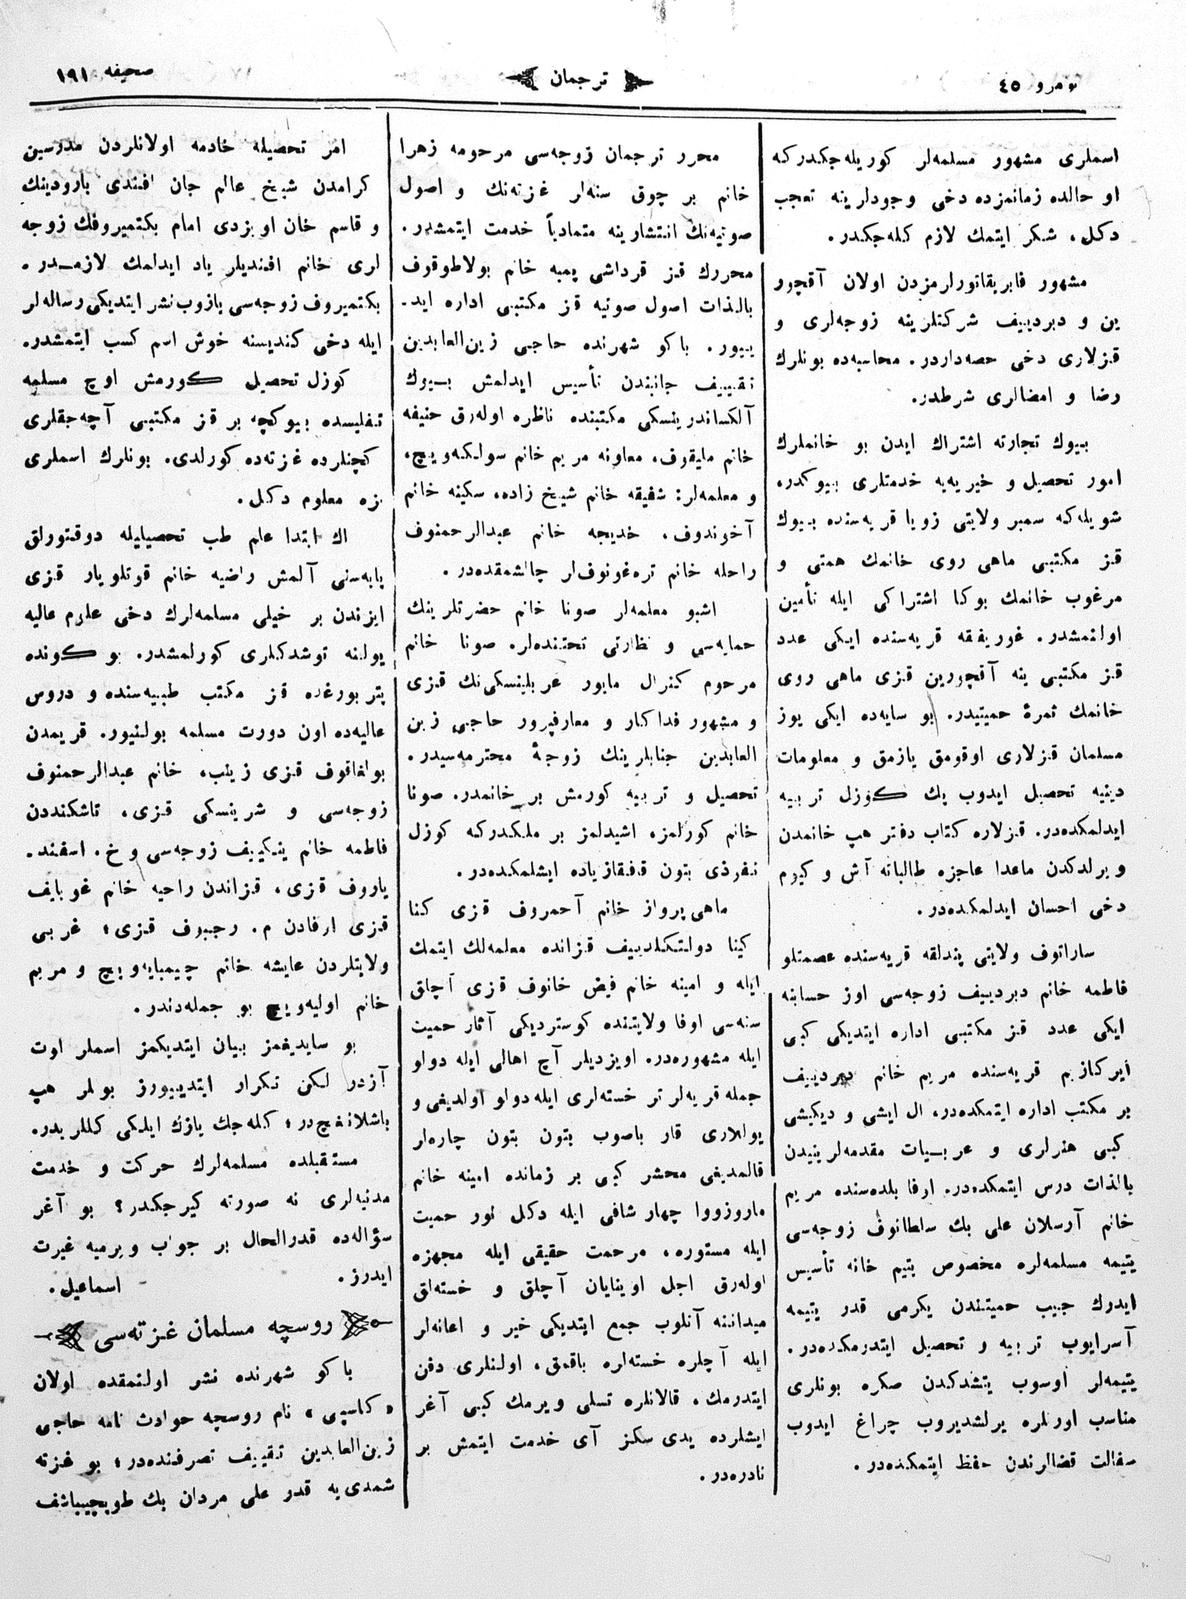 نومرو ٤٥
ترجمان
صحیفه ١٩١
اسملری مشهور مسلمه‌لر کوریله‌جکدرکه
او حالده زمانمزده دخی وجودلرینه تعجب
دکل، شکر ایتمك لازم کله‌جکدر.
مشهور فابریقاتورلرمزدن اولان آقچور
ین و دبردییف شرکتلرینه زوجه‌لری و
قزلاری دخی حصه‌داردر. محاسبه‌ده بونلرك
رضا و امضالری شرطدر.
بیوك تجارته اشتراك ایدن بو خانملرك
امور تحصیل و خیریه‌یه خدمتلری بیوکدر،
شویله‌که سمبر ولایتی زویا قریه‌سنده بیوك
قز مکتبی ماهی روی خانمك همتی و
مرغوب خانمك بوکا اشتراکی ایله تأمین
اولنمشدر. غوریفقه قریه‌سنده ایکی عدد
قز مکتبی ینه آقچورین قزی ماهی روی
خانمك ثمرهٔ حمیتیدر. بو سایه‌ده ایکی یوز
مسلمان قزلاری اوقومق یازمق و معلومات
دینیه تحصیل ایدوب پك کوزل تربیه
ایدلمکده‌در. قزلاره کتاب دفتر هپ خانمدن
ویرلدکدن ماعدا عاجزه طالباته آش و کیوم
دخی احسان ایدلمکده‌در.
ساراتوف ولایتی پندلقه قریه‌سنده عصمتلو
فاطمه خانم دبردییف زوجه‌سی اوز حسابنه
ایکی عدد قز مکتبی اداره ایتدیکی کبی
ایرکازیم قریه‌سنده مریم خانم دبردییف
بر مکتب اداره ایتمکده‌در، ال ایشی و دیکیشی
کبی هنرلری و عربیات مقدمه‌لرینیدن
بالذات درس ایتمکده‌در. ارفا بلده‌سنده مریم
خانم آرسلان علی بك سلطانوف زوجه‌سی
یتیمه مسلمه‌لره مخصوص یتیم خانه تأسیس
ایدرك جیب حمیتندن یکرمی قدر یتیمه
آسرایوب تربیه و تحصیل ایتدرمکده‌در.
یتیمه‌لر اوسوب یتشدکدن صکره بونلری
مناسب اورنلره یرلشدیروب چراغ ایدوب
سفالت قضالرندن حفظ ایتمکده‌در.
محرر ترجمان زوجه‌سی مرحومه زهرا
خانم بر چوق سنه‌لر غزته‌نك و اصول
صوتیه‌نك انتشارینه متمادیاً خدمت ایتمشدر.
محررك قز قرداشی پمبه خانم بولاطوقوف
بالذات اصول صوتیه قز مکتبی اداره اید-
ییور. باکو شهرنده حاجی زین‌العابدین
تقییف جانبندن تأسیس ایدلمش بیوك
آلکساندرینسکی مکتبنده ناظره اوله‌رق حنیفه
خانم مایقوف، معاونه مریم خانم سولکه‌ویچ،
و معلمه‌لر: شفیقه خانم شیخ زاده، سکینه خانم
آخوندوف، خدیجه خانم عبدالرحمنوف
راحله خانم تره‌غونوف‌لر چالشمقده‌در.
اشبو معلمه‌لر صونا خانم حضرتلرینك
حمایه‌سی و نظارتی تحتنده‌لر. صونا خانم
مرحوم کنرال مایور عربلینسکی‌نك قزی
و مشهور فداکار و معارفپرور حاجی زین
العابدین جنابلرینك زوجهٔ محترمه‌سیدر.
تحصیل و تربیه کورمش بر خانمدر. صونا
خانم کورلمز، اشیدلمز بر ملکدرکه کوزل
نفرذی بتون قفقازیاده ایشلمکده‌در.
ماهی پرواز خانم آحمروف قزی کنا
کینا دولتکلدییف قزانده معلمه‌لك ایتمك
ایله و امینه خانم فیض خانوف قزی آچلق
سنه‌سی اوفا ولایتنده کوستردیکی آثار حمیت
ایله مشهوره‌در. اویزدیلر آچ اهالی ایله دولو
جمله قریه‌لر تر خسته‌لری ایله دولو اولدیغی و
یوللاری قار باصوب بتون بتون چاره‌لر
قالمدیغی محشر کبی بر زمانده امینه خانم
ماروزووا چهار شافی ایله دکل نور حمیت
ایله مستوره، مرحمت حقیقی ایله مجهزه
اوله‌رق اجل اوینایان آچلق و خسته‌لق
میداننه آتلوب جمع ایتدیکی خیر و اعانه‌لر
ایله آچلره خسته‌لره باقمق، اولنلری دفن
ایتدرمك، قالانلره تسلی ویرمك کبی آغر
ایشلرده یدی سکز آی خدمت ایتمش بر
نادره‌در.
امر تحصیله خادمه اولانلردن مدرسین
کرامدن شیخ عالم جان افندی بارودینك
و قاسم خان اویزدی امام بکتمیروفك زوجه
لری خانم افندیلر یاد ایدلمك لازمدر.
بکتمیروف زوجه‌سی یازوب نشر ایتدیکی رساله‌لر
ایله دخی کندیسنه خوش اسم کسب ایتمشدر.
کوزل تحصیل کورمش اوچ مسلمه
تفلیسده بیوکچه بر قز مکتبی آچه‌جقلری
کچنلرده غزته‌ده کورلدی. بونلرك اسملری
بزه معلوم دکل.
اك ابتدا علم طب تحصیلیله دوقتورلق
پایه‌سنی آلمش راضیه خانم قوتلویار قزی
ایزندن بر خیلی مسلمه‌لرك دخی علوم عالیه
یولنه توشدکلری کورلمشدر. بو کونده
پتربورغده قز مکتب طبیه‌سنده و دروس
عالیه‌ده اون دورت مسلمه بولنیور. قریمدن
بولغاقوف قزی زینب، خانم عبدالرحمنوف
زوجه‌سی و شرینسکی قزی، تاشکنددن
فاطمه خانم ینکییف زوجه‌سی و خ. اسفند-
یاروف قزی، قزاندن راحیه خانم غوبایف
قزی ارفادن م. رجبوف قزی؛ غربی
ولایتلردن عایشه خانم چیمبایه‌ویچ و مریم
خانم اولیه‌ویچ بو جمله‌دندر.
بو سایدیغمز بیان ایتدیکمز اسملر اوت
آزدر لکن تکرار ایتدیییورز بولر هپ
باشلانغیچ‌در؛ کله‌جك یازك ایلکی کللریدر.
مستقبلده مسلمه‌لرك حرکت و خدمت
مدنیه‌لری نه صورته کیرجکدر؟ بو آغر
سؤاله‌ده قدرالحال بر جواب ویرمیه غیرت
ایدرز. - اسماعیل.
روسچه مسلمان غزته‌سی
باکو شهرنده نشر اولنمقده اولان
«کاسپی» نام روسچه حوادث نامه حاجی
زین‌العابدین تقییف تصرفنده‌در؛ بو غزته
شمدی‌یه قدر علی مردان بك طوپچیباشف